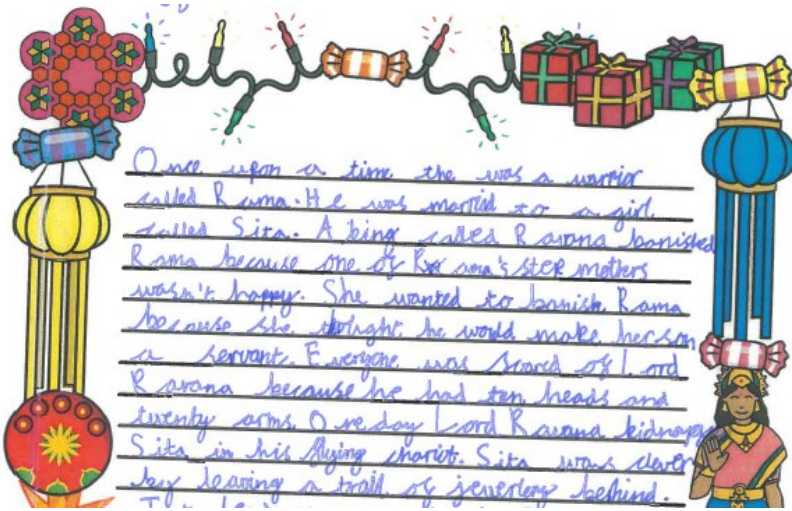 Once upon a time the was a warrior
called Rama. He was married to a girl
called Sita. A king called Ravana banished
Rama because one of Rama's step mothers
wasn't happy. She wanted to banish Rama
because she thought he would make her son
a servant. Everyone was scared of Lord
Ravana because he had ten heads and
twenty arms. One day Lord Ravana kidnapped
Sita in his flying chariot. Sita was clever
by leaving a trail of jewerlery behind.